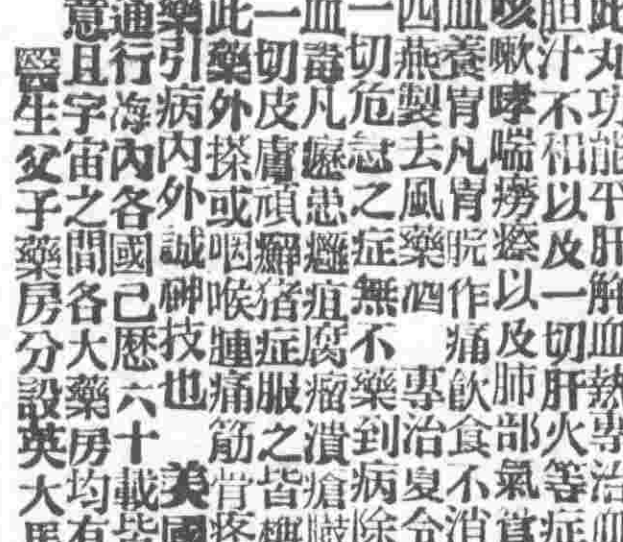 此丸功能平肝解血熱專治血
胆汁不相以及一切肝火等症
咳嗽哮喘癆瘵以及肺部氣
血養胃凡胃脘作痛飲食不消
四燕製去風藥酒 專治夏令
一切危急之症無不藥到病除
血毒凡癧患癰疽腐瘤潰瘡
一切皮膚頑癬猪症服之皆
此藥外搽或咽喉腫痛筋骨疼
藥引病內外誠神技也 美國
通行海內各國已歷六十載皆
意且宇宙之間各大藥房均有
醫生父子藥房分設英大馬